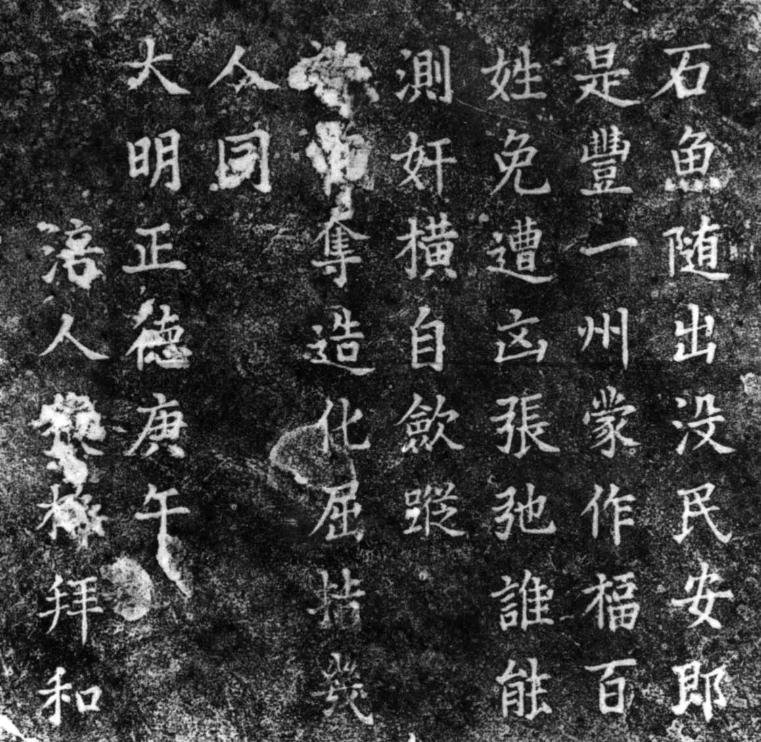 石魚随出没民安即
是豐一州蒙作福百
姓免遭㐫張弛誰能
測奸橫自歛蹤
奪造化屈指幾
人同
大明正德庚午
涪人拜和